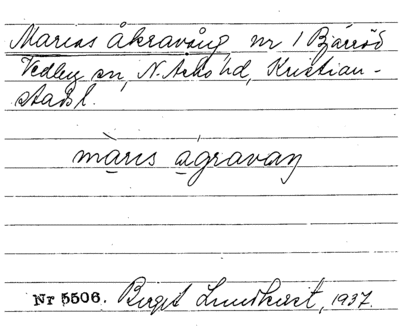 Marias åkravång nr 1 Bjärröd
Vedby sn, N. Åsbo hd, Kristian-
stads l.
màris ágravaŋ
Nr 5506. Birgit Lundkvist, 1937.